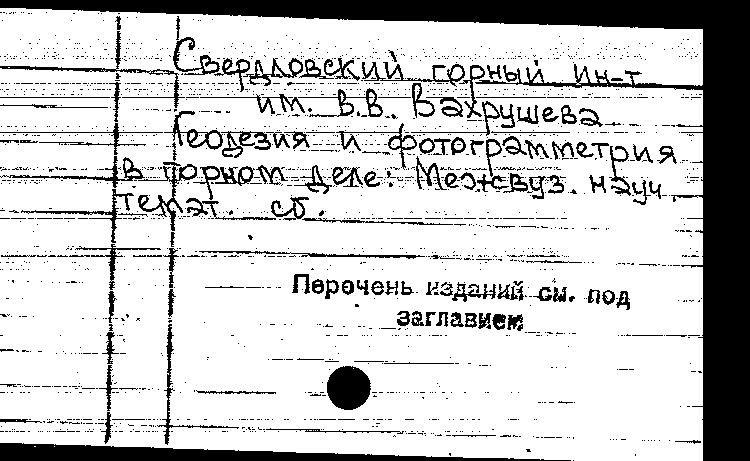 Свердловский горный ин-т
им. В.В. Вахрушева
Геодезия и фотограмметрия
в горном деле: Межвуз. науч.
темат. сб.
Перечень изданий см. под
заглавием